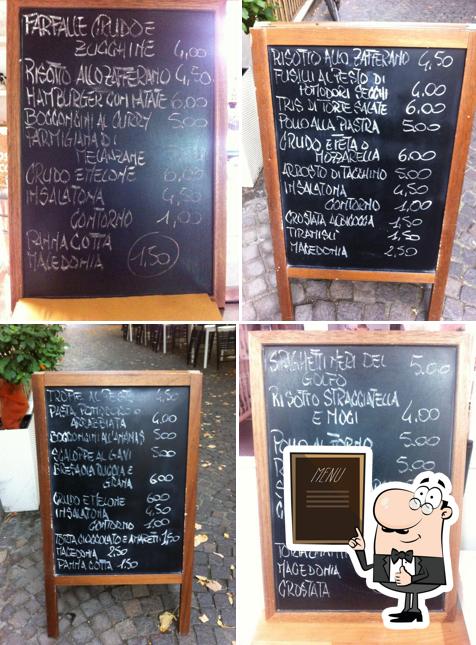 FARFALLE CRUDO E
ZUCCHINE 4,00
RISOTTO ALLO ZAFFERANO 4,50
HAMBURGER CON PATATE 6,00
BOCCONCINI AL CURRY 5,00
PARMIGIANA DI
MELANZANE
CRUDO E MELONE 6,00
INSALATONA 4,50
CONTORNO 1,00
PANNA COTTA
MACEDONIA 1,50
RISOTTO ALLO ZAFFERANO 4,50
FUSILLI AL PESTO DI
POMODORI SECCHI 4,00
TRIS DI TORTE SALATE 6,00
POLLO ALLA PIASTRA 5,00
CRUDO E FETA O
MOZZARELLA 6,00
ARROSTO DI TACCHINO 5,00
INSALATONA 4,50
CONTORNO 1,00
CROSTATA ALBICOCCA 1,50
TIRAMISU' 1,50
MACEDONIA 2,50
TROFIE AL PESTO 4,50
PASTA POMODORO O
ARRABBIATA 4,00
BOCCONCINI ALL'ANANAS 5,00
SCALOPPE AL 5,00
BRESAOLA RUCOLA E
GRANA 6,00
CRUDO E MELONE 6,00
INSALATONA 4,50
CONTORNO 1,00
TORTA CIOCCOLATO E AMARETTI 1,50
MACEDONIA 2,50
PANNA COTTA 1,50
SPAGHETTI NERI DEL
GOLFO 5,00
RISOTTO STRACCIATELLA
E 4,00
POLLO AL FORNO 5,00
5,00
MENU
MACEDONIA
CROSTATA